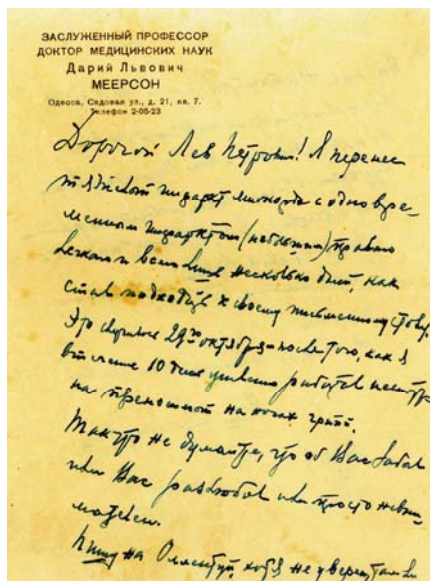 ЗАСЛУЖЕННЫЙ ПРОФЕССОР
ДОКТОР МЕДИЦИНСКИХ НАУК
Дарий Львович
МЕЕРСОН
Одесса, Садовая ул., д. 21, кв. 7.
Телефон 2-05-23
Дорогой Лев Петрович! Я перенес
тяжелый инфаркт миокарда с одновре-
менным инфарктом (небольшим) правого
легкого и всего лишь несколько дней, как
стал подходить к своему письменному столу.
Это случилось 29го октября после того, как я
в течение 10 дней усиленно работал
на ногах грипп.
Так что не думайте, что об Вас забыл
или Вас разлюбил или просто невни-
мателен.
Пишу на хотя не уверен, там ли